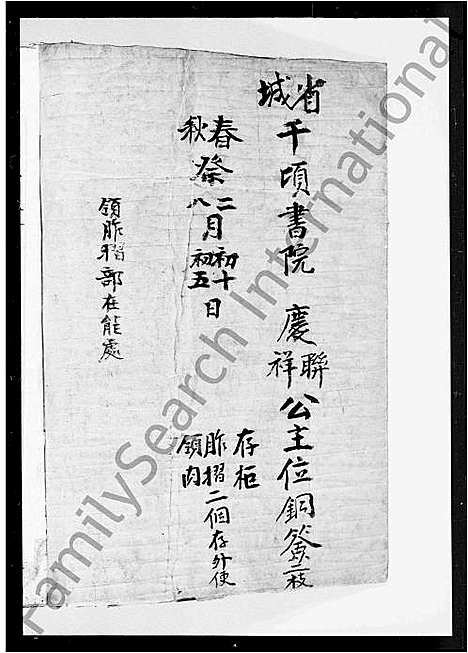 省城千頃書院 慶聯祥公主位銅簽二枝
存柜
春秋祭二八月初十初五日
胙摺二個存外便
領肉
領胙摺部在能處
FamilySearch International